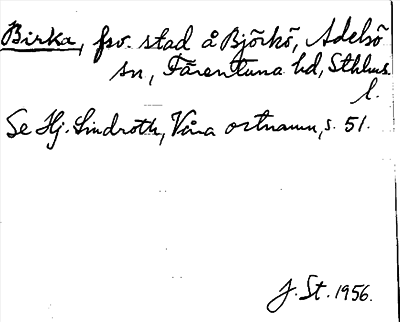 Birka, fsv. stad å Björkö, Adelsö
sn, Färentuna hd, Sthlms
l.
Se Hj. Lindroth, Våra ortnamn, s. 51.
J. St. 1956.